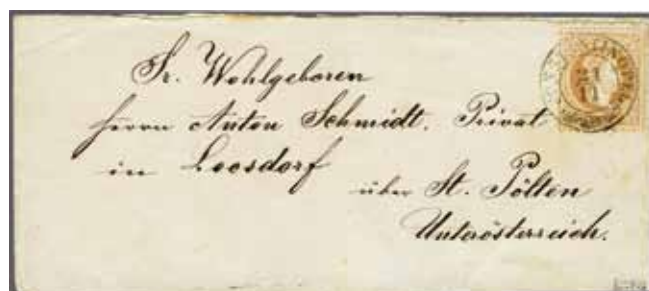 Sr. Wohlgeboren
Herrn Anton Schmidt. Privat
in Loosdorf
über St. Pölten
Unterösterreich.